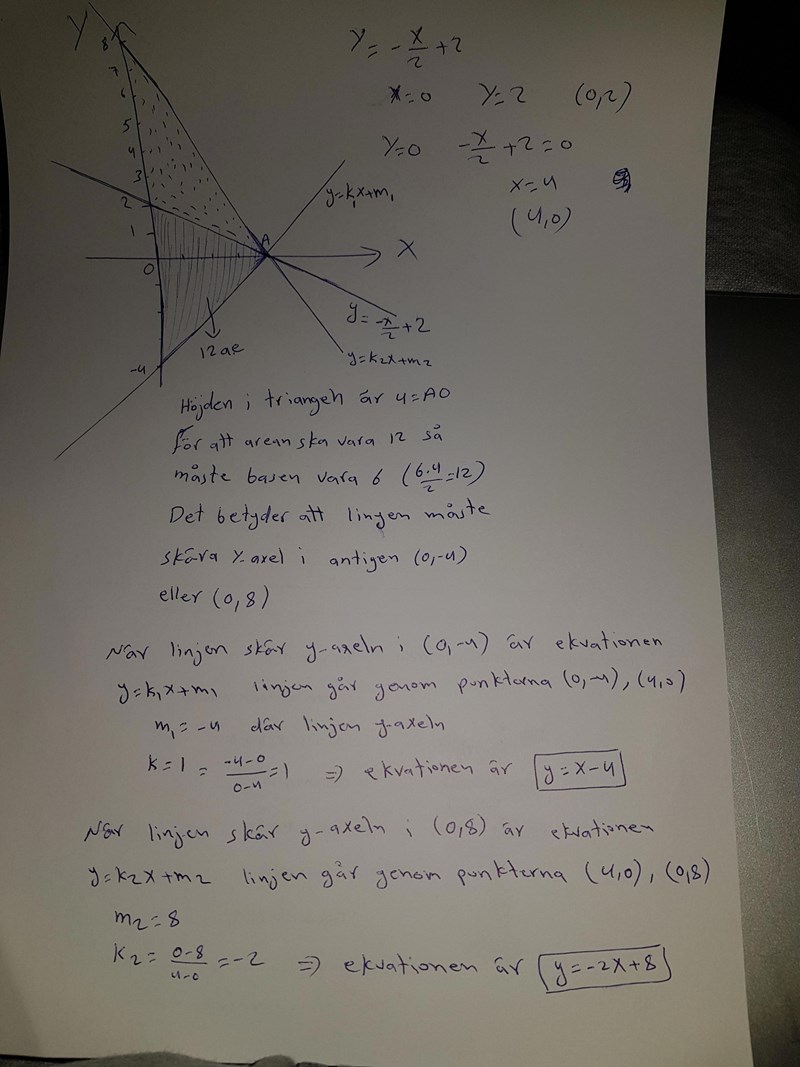 Y
8
7
6
5
4
3
2
1
0
-4
A
X
y=k₁x+m₁
y=-x/2+2
y=k₂x+m₂
12 ae
Y=-x/2+2
x=0 Y=2 (0,2)
Y=0 -x/2+2=0
x=4
(4,0)
Höjden i triangeln är 4=AO
för att arean ska vara 12 så
måste basen vara 6 (6·4/2=12)
Det betyder att linjen måste
skära Y-axel i antigen (0,-4)
eller (0,8)
När linjen skär y-axeln i (0,-4) är ekvationen
y=k₁x+m₁ linjen går genom punkterna (0,-4), (4,0)
m₁=-4 där linjen y-axeln
k=1=-4-0/0-4=1 => ekvationen är y=x-4
När linjen skär y-axeln i (0,8) är ekvationen
y=k₂x+m₂ linjen går genom punkterna (4,0), (0,8)
m₂=8
k₂=0-8/4-0=-2 => ekvationen är y=-2x+8